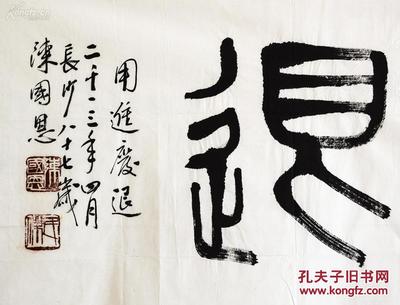 退
用進廢退
二千一三年四月
長沙八十七歲
陳國恩
孔夫子旧书网
www.kongfz.com